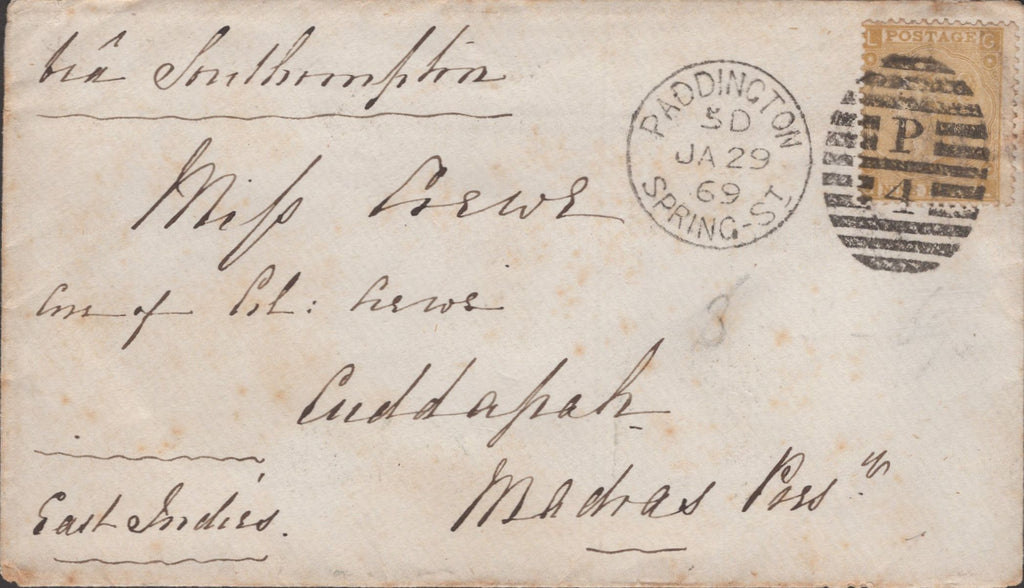 via Southampton
Miss Crewe
Care of Col: Crewe
Cuddapah
Madras Pres.cy
East Indies.
PADDINGTON
5D
JA 29
69
SPRING-ST
L POSTAGE G
P
4
3